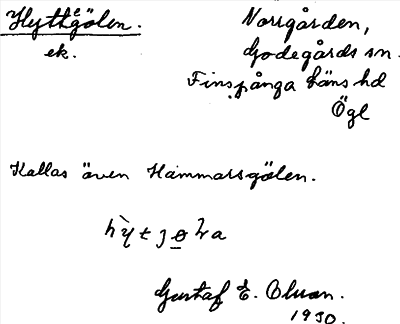 Hyttgölen.
Norrgården,
ek.
Godegårds sn.
Finspånga läns hd
Ögl
Kallas även Hammarsgölen.
Gustaf E. Olsson.
1930.